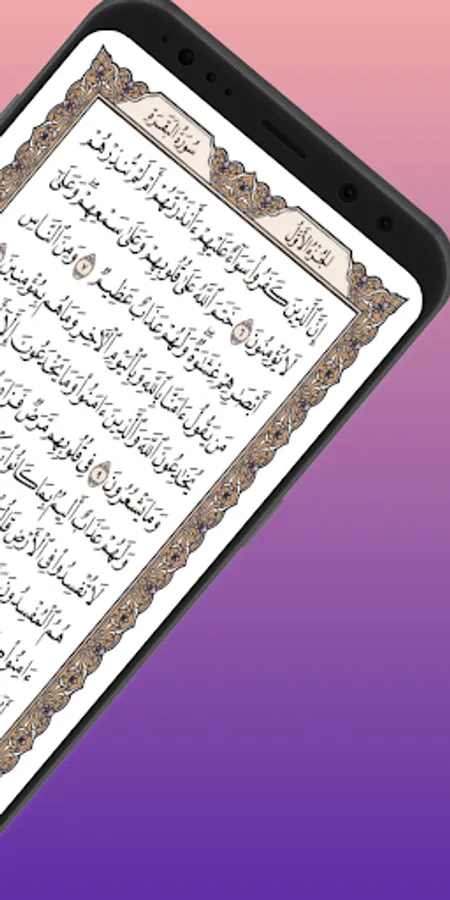 سُورَةُ الْبَقَرَةِ
الْجُزْءُ الْأَوَّلُ
إِنَّ ٱلَّذِينَ كَفَرُوا۟ سَوَآءٌ عَلَيْهِمْ ءَأَنذَرْتَهُمْ أَمْ لَمْ تُنذِرْهُمْ
لَا يُؤْمِنُونَ ٦ خَتَمَ ٱللَّهُ عَلَىٰ قُلُوبِهِمْ وَعَلَىٰ سَمْعِهِمْ ۖ وَعَلَىٰٓ
أَبْصَٰرِهِمْ غِشَٰوَةٌ ۖ وَلَهُمْ عَذَابٌ عَظِيمٌ ٧ وَمِنَ ٱلنَّاسِ
مَن يَقُولُ ءَامَنَّا بِٱللَّهِ وَبِٱلْيَوْمِ ٱلْءَاخِرِ وَمَا هُم بِمُؤْمِنِينَ
يُخَٰدِعُونَ ٱللَّهَ وَٱلَّذِينَ ءَامَنُوا۟ وَمَا يَخْدَعُونَ
وَمَا يَشْعُرُونَ ٩ فِى قُلُوبِهِم مَّرَضٌ
وَلَهُمْ عَذَابٌ أَلِيمٌۢ بِمَا كَانُوا۟
لَا تُفْسِدُوا۟ فِى ٱلْأَرْضِ
هُمُ ٱلْمُفْسِدُونَ
ءَامِنُوا۟